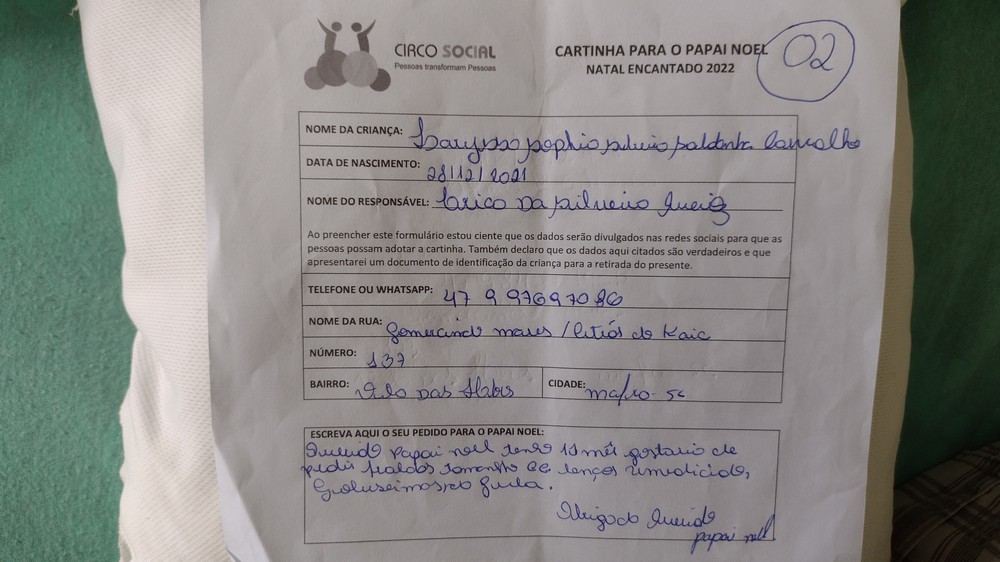 CIRCO SOCIAL
Pessoas transformam Pessoas
CARTINHA PARA O PAPAI NOEL
NATAL ENCANTADO 2022
02
NOME DA CRIANÇA: sophia Carvalho
DATA DE NASCIMENTO: 28/12/2021
NOME DO RESPONSÁVEL: da
Ao preencher este formulário estou ciente que os dados serão divulgados nas redes sociais para que as
pessoas possam adotar a cartinha. Também declaro que os dados aqui citados são verdadeiros e que
apresentarei um documento de identificação da criança para a retirada do presente.
TELEFONE OU WHATSAPP: 47 9 97697086
NOME DA RUA: Gomercindo / do Kaic
NÚMERO: 137
BAIRRO: das
CIDADE: mafra-sc
ESCREVA AQUI O SEU PEDIDO PARA O PAPAI NOEL:
Querido papai noel tenho 11 mês gostaria de
pedir fraldas tamanho GG lenços umidicido,
Obrigado Querido
papai noel